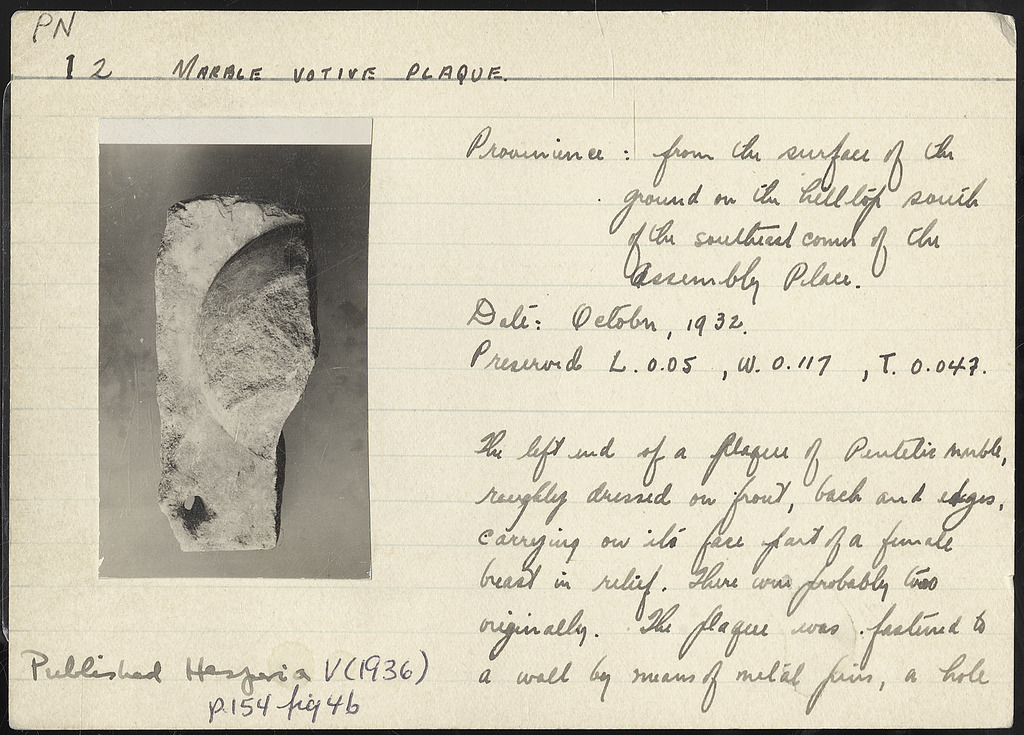 PN
12 MARBLE VOTIVE PLAQUE.
Provinience : from the surface of the
ground on the hilltop south
of the southeast corner of the
Assembly Place.
Date: October, 1932.
Preserved L. 0.05 , W. 0.117 , T. 0.047.
The left end of a plaque of Pentelic marble,
roughly dressed on front, back and edges,
carrying on its face part of a female
breast in relief. There were probably two
originally. The plaque was fastened to
a wall by means of metal pins, a hole
Published Hesperia V (1936)
p.154 fig 4b